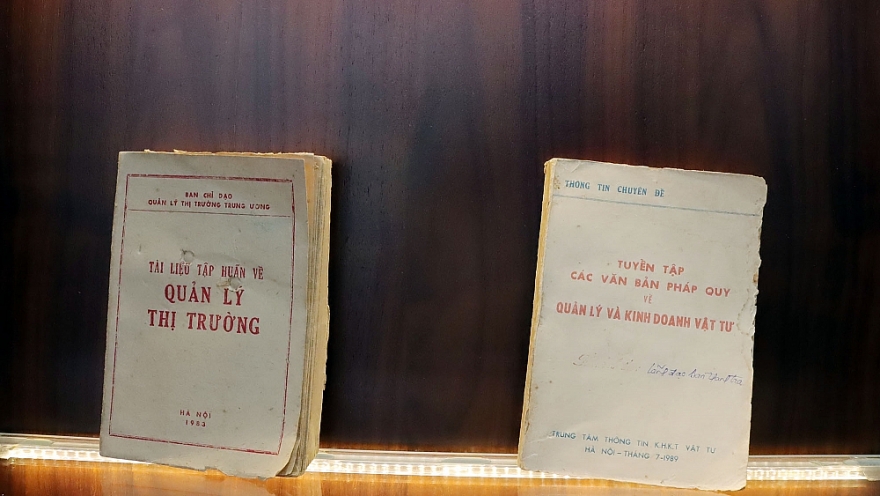 BAN CHỈ ĐẠO
QUẢN LÝ THỊ TRƯỜNG TRUNG ƯƠNG
TÀI LIỆU TẬP HUẤN VỀ
QUẢN LÝ
THỊ TRƯỜNG
HÀ NỘI
1983
THÔNG TIN CHUYÊN ĐỀ
TUYỂN TẬP
CÁC VĂN BẢN PHÁP QUY
VỀ
QUẢN LÝ VÀ KINH DOANH VẬT TƯ
TRUNG TÂM THÔNG TIN K.H.K.T VẬT TƯ
HÀ NỘI - THÁNG 7-1989